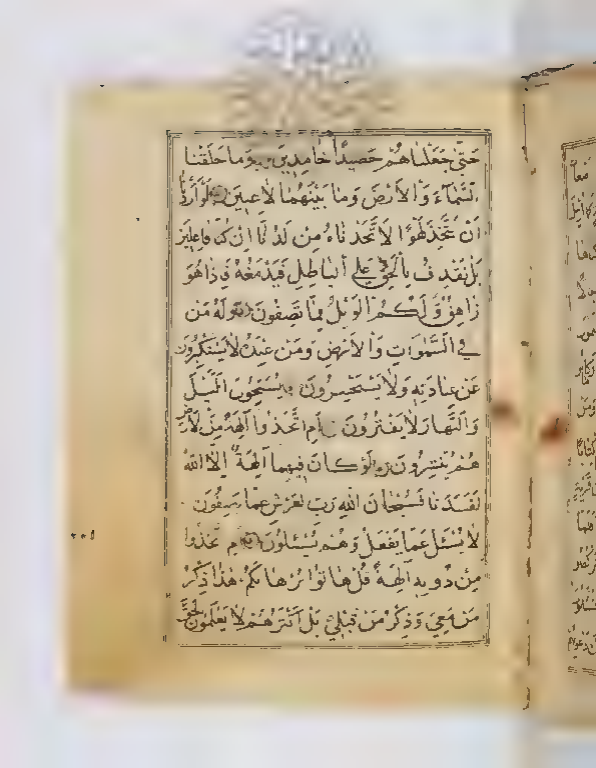 حَتَّىٰ جَعَلْنَاهُمْ حَصِيدًا خَامِدِينَ وَمَا خَلَقْنَا
السَّمَاءَ وَالْاَرْضَ وَمَا بَيْنَهُمَا لَاعِبِينَ لَوْ اَرَدْنَا
اَنْ نَتَّخِذَ لَهْوًا لَاتَّخَذْنَاهُ مِنْ لَدُنَّا اِنْ كُنَّا فَاعِلِينَ
بَلْ نَقْذِفُ بِالْحَقِّ عَلَى الْبَاطِلِ فَيَدْمَغُهُ فَاِذَا هُوَ
زَاهِقٌ وَلَكُمُ الْوَيْلُ مِمَّا تَصِفُونَ وَلَهُ مَنْ
فِي السَّمٰوَاتِ وَالْاَرْضِ وَمَنْ عِنْدَهُ لَا يَسْتَكْبِرُونَ
عَنْ عِبَادَتِهِ وَلَا يَسْتَحْسِرُونَ يُسَبِّحُونَ الَّيْلَ
وَالنَّهَارَ لَا يَفْتُرُونَ اَمِ اتَّخَذُوا اٰلِهَةً مِنَ الْاَرْضِ
هُمْ يُنْشِرُونَ لَوْ كَانَ فِيهِمَا اٰلِهَةٌ اِلَّا اللّٰهُ
لَفَسَدَتَا فَسُبْحَانَ اللّٰهِ رَبِّ الْعَرْشِ عَمَّا يَصِفُونَ
لَا يُسْئَلُ عَمَّا يَفْعَلُ وَهُمْ يُسْئَلُونَ اَمِ اتَّخَذُوا
مِنْ دُونِهِ اٰلِهَةً قُلْ هَاتُوا بُرْهَانَكُمْ هٰذَا ذِكْرُ
مَنْ مَعِيَ وَذِكْرُ مَنْ قَبْلِي بَلْ اَكْثَرُهُمْ لَا يَعْلَمُونَ الْحَقَّ